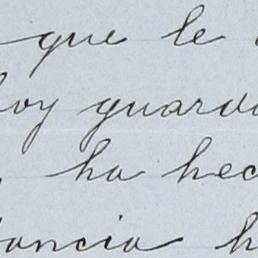 que le
hoy guard
, ha hec
tancia h